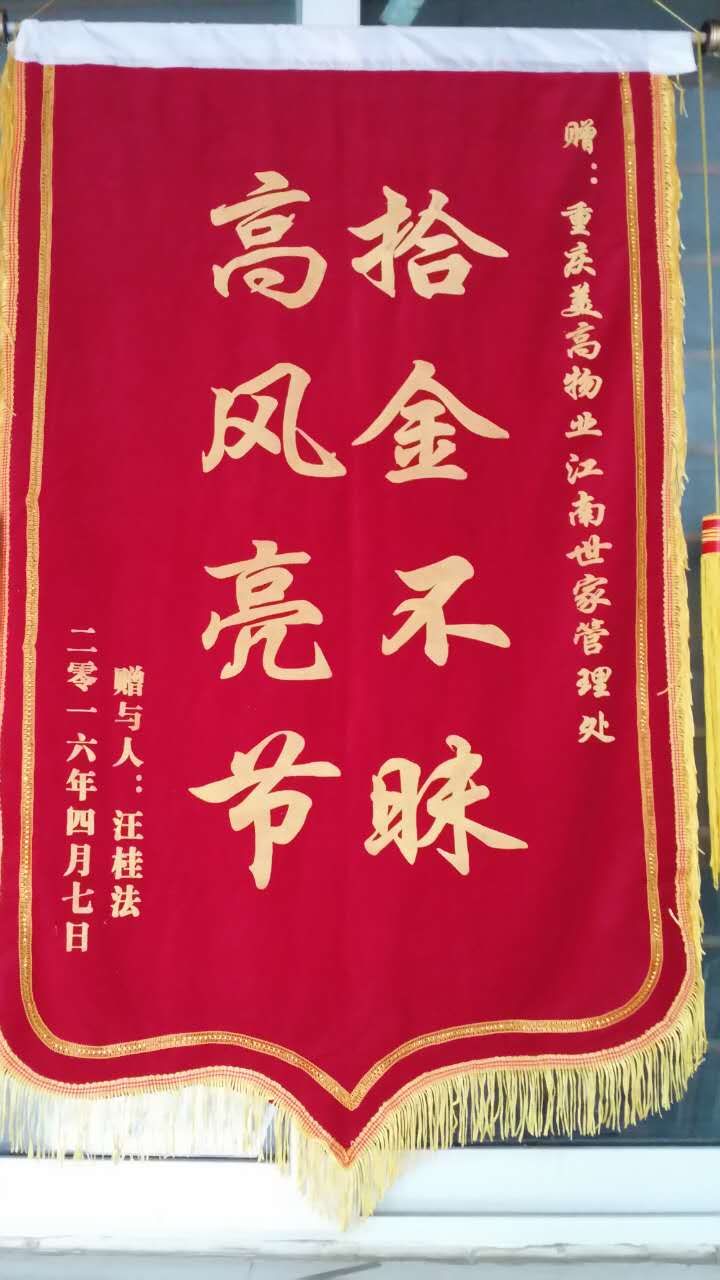 赠：重庆美高物业江南世家管理处
拾金不昧
高风亮节
赠与人：汪桂法
二零一六年四月七日